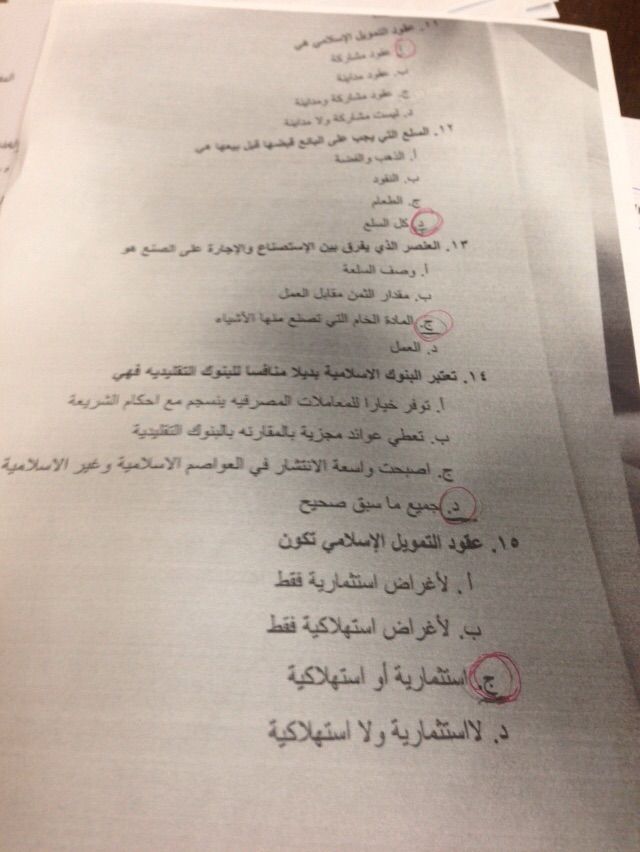 ١١. عقود التمويل الإسلامي هي
أ. عقود مشاركة
ب. عقود مداينة
ج. عقود مشاركة ومداينة
د. ليست مشاركة ولا مداينة
١٢. السلع التي يجب على البائع قبضها قبل بيعها هي
أ. الذهب والفضة
ب. النقود
ج. الطعام
د. كل السلع
١٣. العنصر الذي يفرق بين الإستصناع والإجارة على الصنع هو
أ. وصف السلعة
ب. مقدار الثمن مقابل العمل
ج. المادة الخام التي تصنع منها الأشياء
د. العمل
١٤. تعتبر البنوك الاسلامية بديلا منافسا للبنوك التقليديه فهي
أ. توفر خيارا للمعاملات المصرفيه ينسجم مع احكام الشريعة
ب. تعطي عوائد مجزية بالمقارنه بالبنوك التقليدية
ج. اصبحت واسعة الانتشار في العواصم الاسلامية وغير الاسلامية
د. جميع ما سبق صحيح
١٥. عقود التمويل الإسلامي تكون
أ. لأغراض استثمارية فقط
ب. لأغراض استهلاكية فقط
ج. استثمارية أو استهلاكية
د. لااستثمارية ولا استهلاكية